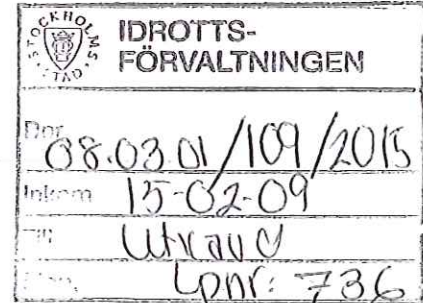 STOCKHOLMS STAD
IDROTTS-
FÖRVALTNINGEN
Dnr 08.03.01/109/2015
Inkom 15-02-09
Till
Lpnr: 736